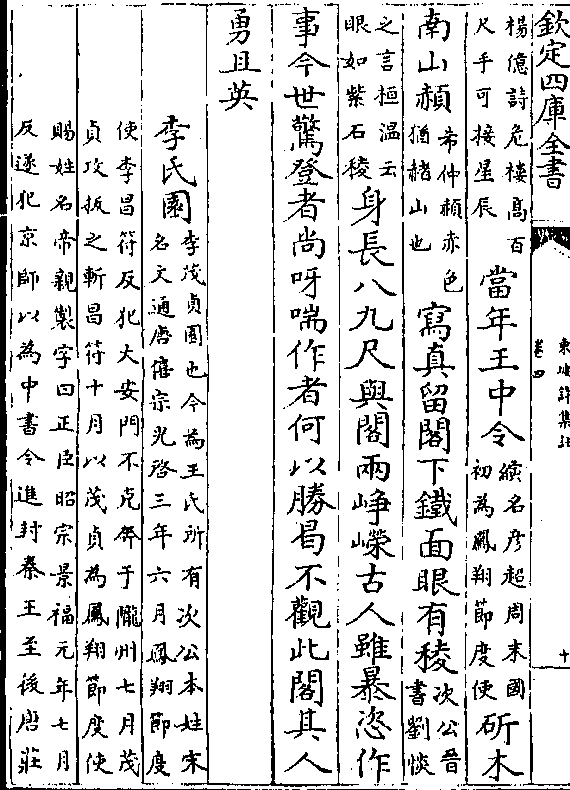 欽定四庫全書
東坡詩集註
卷四
十
楊億詩危樓高百
尺手可接星辰
當年王中令
縯名彦超周末國
初為鳳翔節度使
斫木
南山赬
希仲赬赤色
猶赭山也
寫真留閣下鐵面眼有稜
次公晋
書劉惔
之言桓温云
眼如紫石稜
身長八九尺與閣兩峥嶸古人雖暴恣作
事今世驚登者尚呀喘作者何以勝曷不觀此閣其人
勇且英
李氏園
李茂貞園也今為王氏所有次公本姓宋
名文通唐僖宗光啓三年六月鳳翔節度
使李昌符反犯大安門不克奔于隴州七月茂
貞攻拔之斬昌符十月以茂貞為鳳翔節度使
賜姓名帝親製字曰正臣昭宗景福元年七月
反遂犯京師以為中書令進封秦王至後唐莊